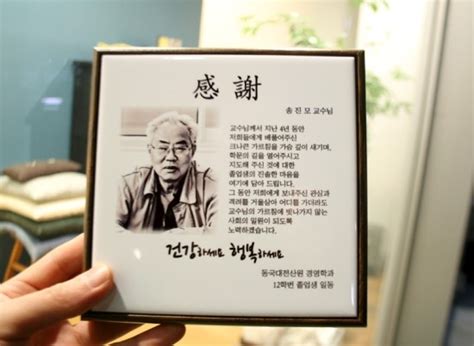 感謝
송 진 모 교수님
교수님께서 지난 4년 동안
저희들에게 베풀어주신
크나큰 가르침을 가슴 깊이 새기며,
학문의 길을 열어주시고
지도해 주신 것에 대한
졸업생의 진솔한 마음을
여기에 담아 드립니다.
그 동안 저희에게 보내주신 관심과
격려를 거울삼아 어디를 가더라도
교수님의 가르침에 빗나가지 않는
사회의 일원이 되도록
노력하겠습니다.
건강하세요 행복하세요
동국대전산원 경영학과
12학번 졸업생 일동